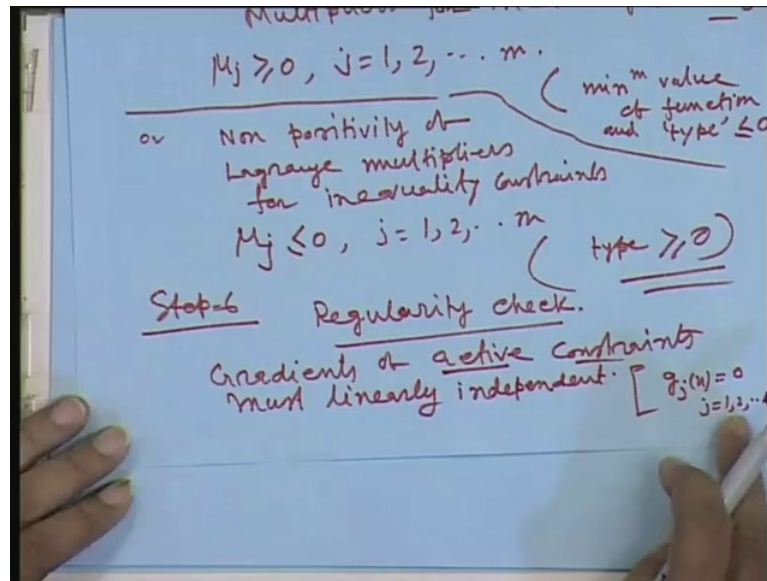 μj ≥ 0, j = 1, 2, ... m.
( minᵐ value
of function
and 'type' ≤ 0
or Non positivity of
Lagrange multipliers
for inequality constraints
μj ≤ 0, j = 1, 2, .. m
( type ≥ 0 )
Step-6 Regularity check.
Gradients of active constraints
must linearly independent. [ gj(x) = 0
j = 1, 2, ..